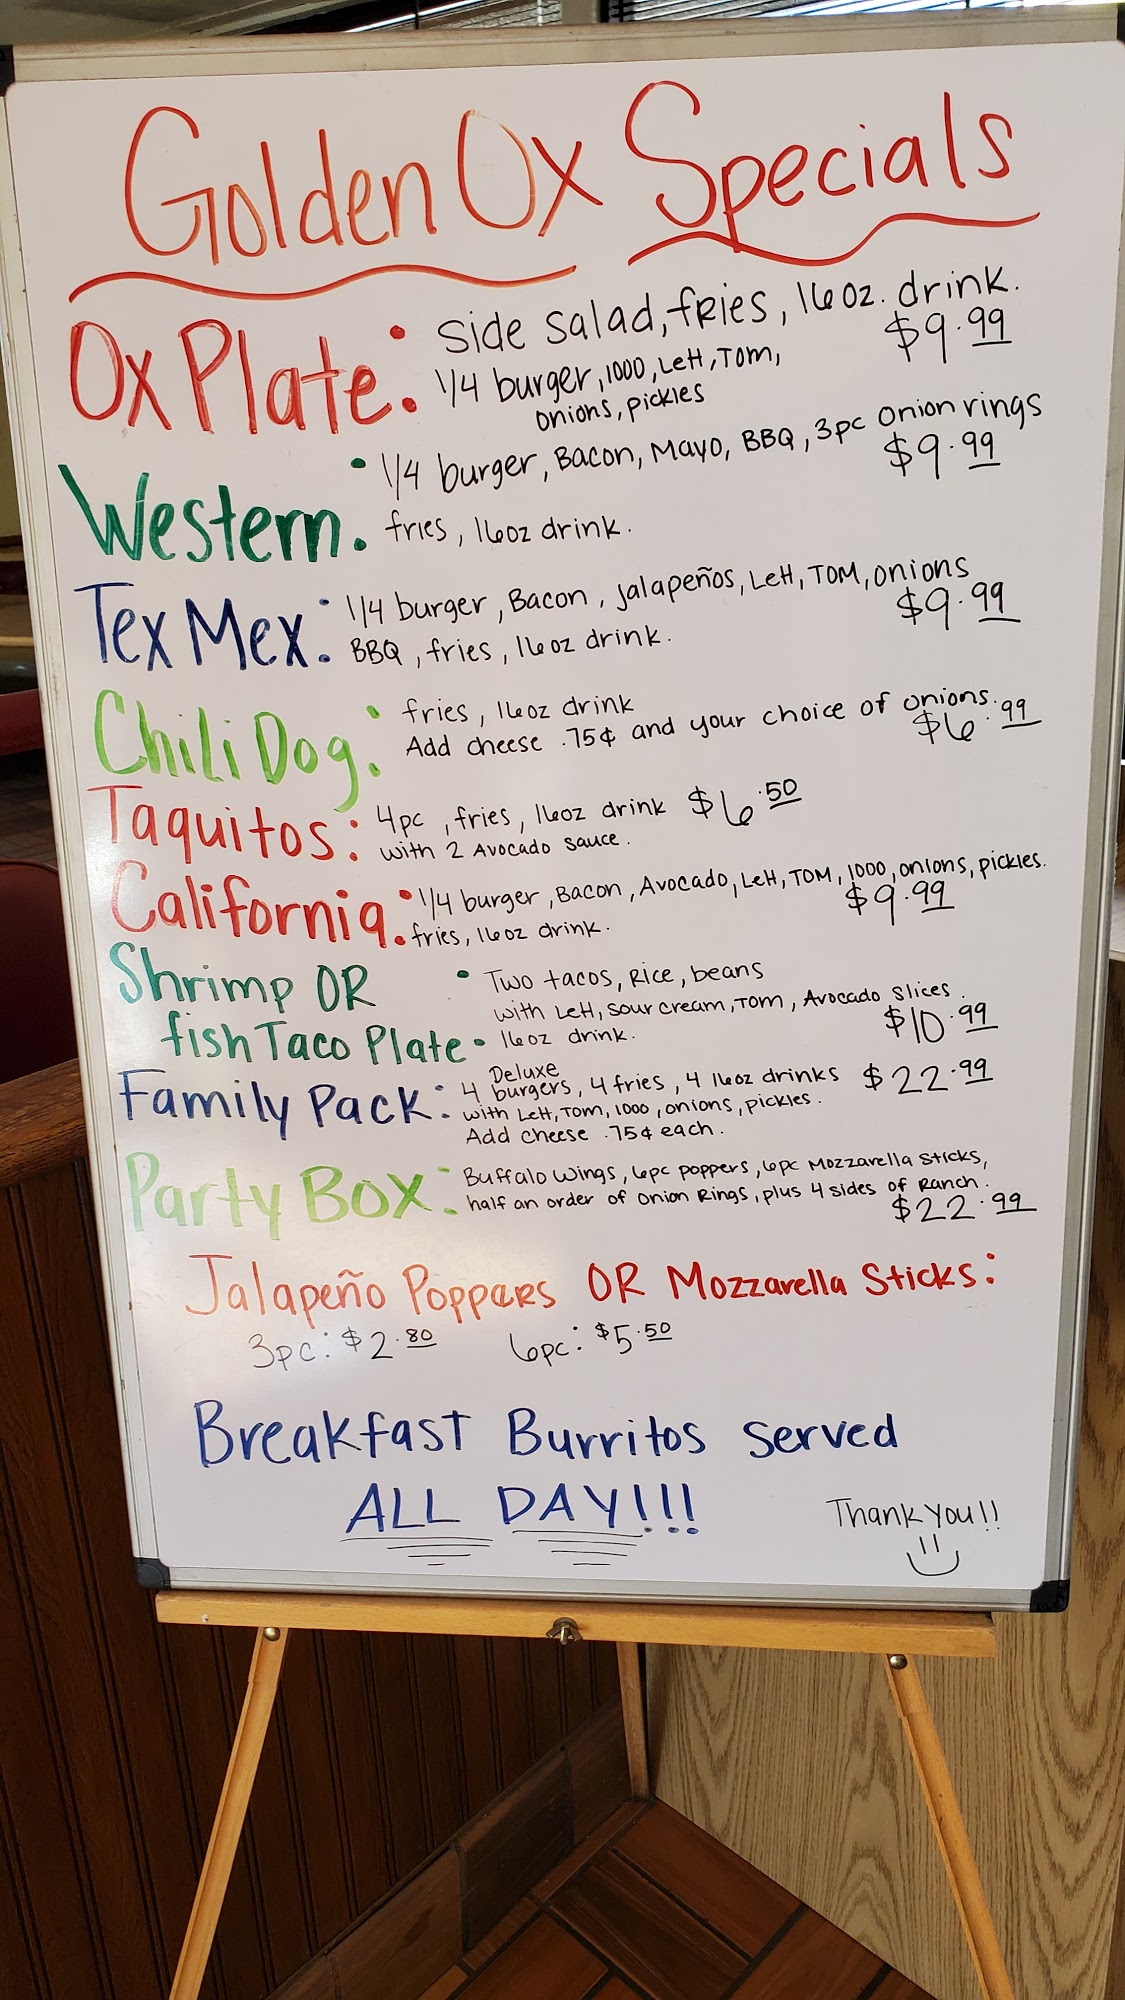 Golden Ox Specials
Ox Plate: side salad, fries, 16oz. drink.
$9.99
1/4 burger, 1000, Lett, Tom,
onions, pickles
Western. 1/4 burger, Bacon, Mayo, BBQ, 3pc onion rings
$9.99
fries, 16oz drink.
Tex Mex: 1/4 burger, Bacon, jalapeños, Lett, TOM, onions
$9.99
BBQ, fries, 16oz drink.
Chili Dog. fries, 16oz drink
Add cheese .75¢ and your choice of onions.
$6.99
Taquitos: 4pc, fries, 16oz drink $6.50
with 2 Avocado sauce.
California. 1/4 burger, Bacon, Avocado, Lett, TOM, 1000, onions, pickles.
$9.99
fries, 16oz drink.
Shrimp OR • Two tacos, Rice, beans
with Lett, sour cream, TOM, Avocado slices.
fish Taco Plate • 16oz drink.
$10.99
Deluxe
Family Pack: 4 burgers, 4 fries, 4 16oz drinks $22.99
with Lett, Tom, 1000, onions, pickles.
Add cheese .75¢ each.
Party Box: Buffalo wings, 6pc poppers, 6pc Mozzarella Sticks,
half an order of Onion Rings, plus 4 sides of Ranch.
$22.99
Jalapeño Poppers OR Mozzarella Sticks:
3pc: $2.80 6pc: $5.50
Breakfast Burritos served
ALL DAY!!!
Thank you!!